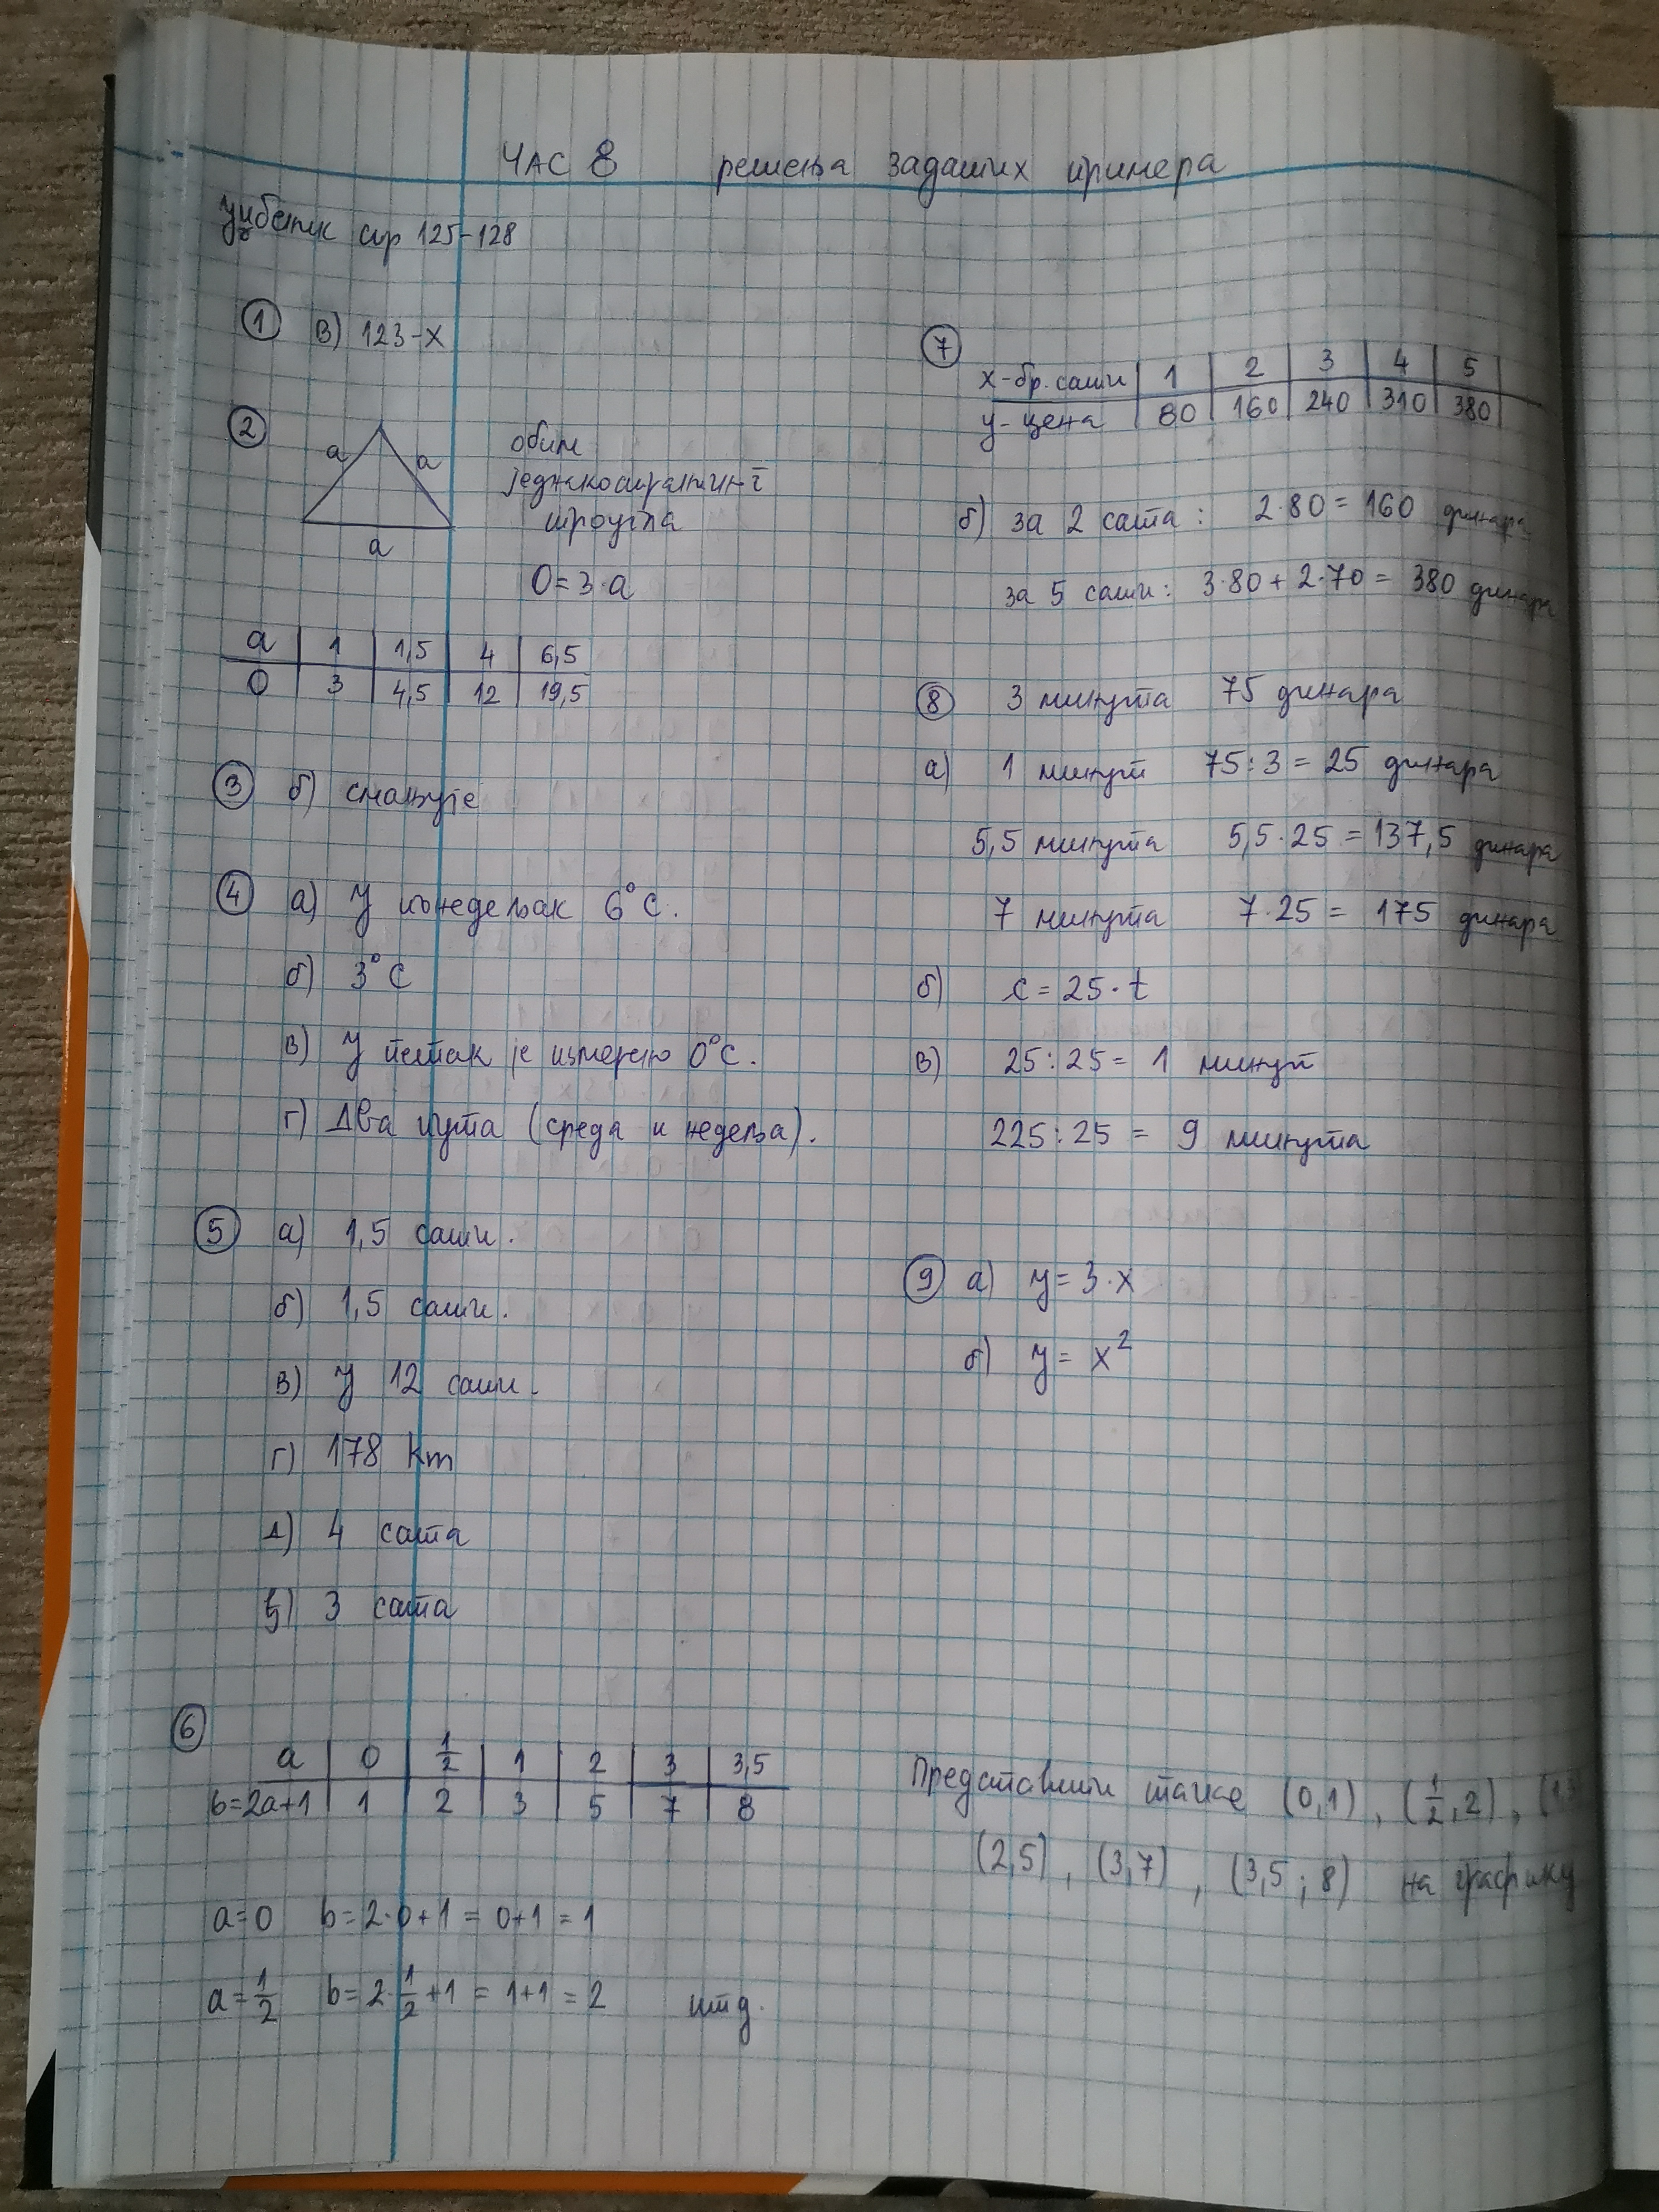 ЧАС 8 решења задатих примера
уџбеник стр 125-128
① в) 123-x
②
a a
a
обим
једнакостраничног
троугла
O=3·a
a | 1 | 1,5 | 4 | 6,5
O | 3 | 4,5 | 12 | 19,5
③ б) смањује
④ а) У понедељак 6°C.
б) 3°C
в) У петак је измерено 0°C.
г) Два пута (среда и недеља).
⑤ а) 1,5 сати.
б) 1,5 сати.
в) У 12 сати.
г) 178 km
д) 4 сата
ђ) 3 сата
⑥
a | 0 | 1/2 | 1 | 2 | 3 | 3,5
b=2a+1 | 1 | 2 | 3 | 5 | 7 | 8
a=0 b=2·0+1=0+1=1
a=1/2 b=2·1/2+1=1+1=2 итд.
⑦
x-бр.сати | 1 | 2 | 3 | 4 | 5
y-цена | 80 | 160 | 240 | 310 | 380
б) за 2 сата: 2·80=160 динара
за 5 сати: 3·80+2·70=380 динара
⑧ 3 минута 75 динара
а) 1 минут 75:3=25 динара
5,5 минута 5,5·25=137,5 динара
7 минута 7·25=175 динара
б) c=25·t
в) 25:25=1 минут
225:25=9 минута
⑨ а) y=3·x
б) y=x²
Представити тачке (0,1), (1/2,2), (1,3
(2,5), (3,7), (3,5;8) на графику